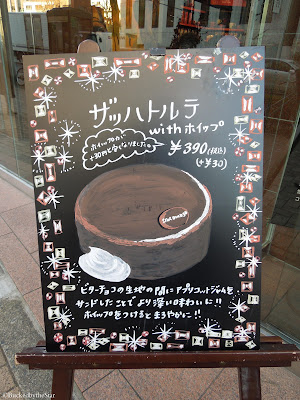 ザッハトルテ
withホイップ
ホイップのみ
+30円と安くなりました。
¥390(税込)
(+¥30)
ビターチョコの生地の間にアプリコットジャムを
サンドしたことでより深い味わいに!!
ホイップをつけるとまろやかに!!